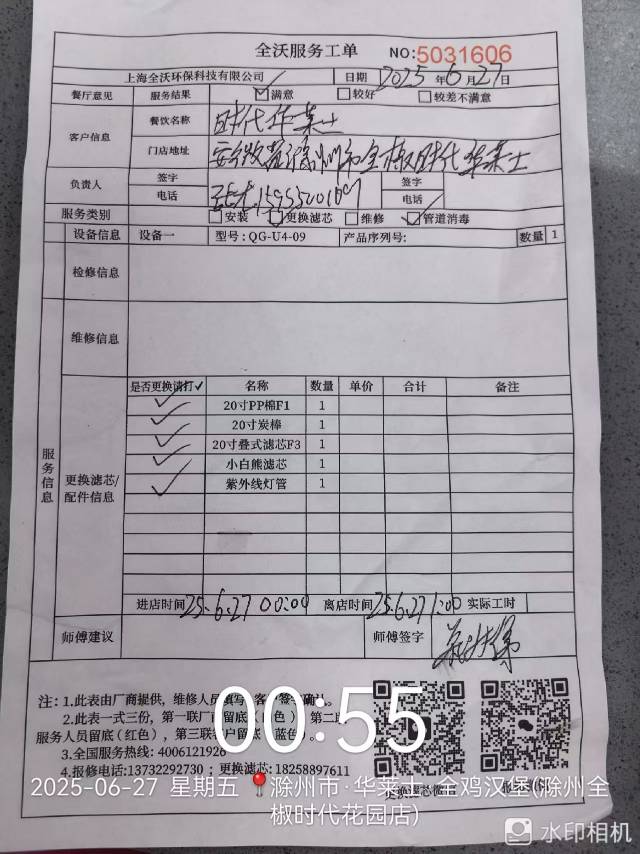 全沃服务工单 NO:5031606
上海全沃环保科技有限公司 日期 2025 年 6 月 27 日
餐厅意见 服务结果 满意 较好 较差不满意
客户信息 餐饮名称 时代华莱士
门店地址 安徽省滁州市全椒时代华莱士
负责人 签字 签字
电话 电话
服务类别 安装 更换滤芯 维修 管道消毒
设备信息 设备一 型号:QG-U4-09 产品序列号: 数量 1
检修信息
维修信息
服务信息
更换滤芯/配件信息
是否更换请打✓ 名称 数量 单价 合计 备注
✓ 20寸PP棉F1 1
✓ 20寸炭棒 1
✓ 20寸叠式滤芯F3 1
✓ 小白熊滤芯 1
✓ 紫外线灯管 1
进店时间 25.6.27 00:00 离店时间 25.6.27 1:00 实际工时
师傅建议 师傅签字
注: 1.此表由厂商提供，维修人员填写，客户签字确认。
2.此表一式三份，第一联厂商留底（白色），第二联
服务人员留底(红色)，第三联客户留底（蓝色）。
3.全国服务热线: 4006121926
4.报修电话:13732292730 ；更换滤芯:18258897611
更换滤芯微信
00:55
2025-06-27 星期五 滁州市·华莱士·全鸡汉堡(滁州全
椒时代花园店)
水印相机